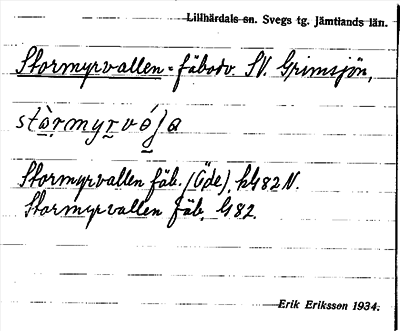 Lillhärdals sn. Svegs tg. Jämtlands län.
Stormyrvallen = fäbodv. SV. Grimsjön,
Stormyrvallen fäb. (Öde), kG82N.
Stormyrvallen fäb. G82.
Erik Eriksson 1934.